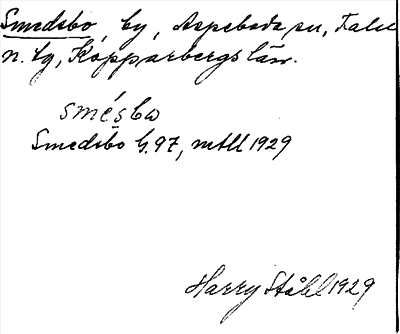 Smedsbo, by, Aspeboda sn, Falu
n. tg, Kopparbergs län.
smésbω
Smedsbo G.97, mtll 1929
Harry Ståhl 1929